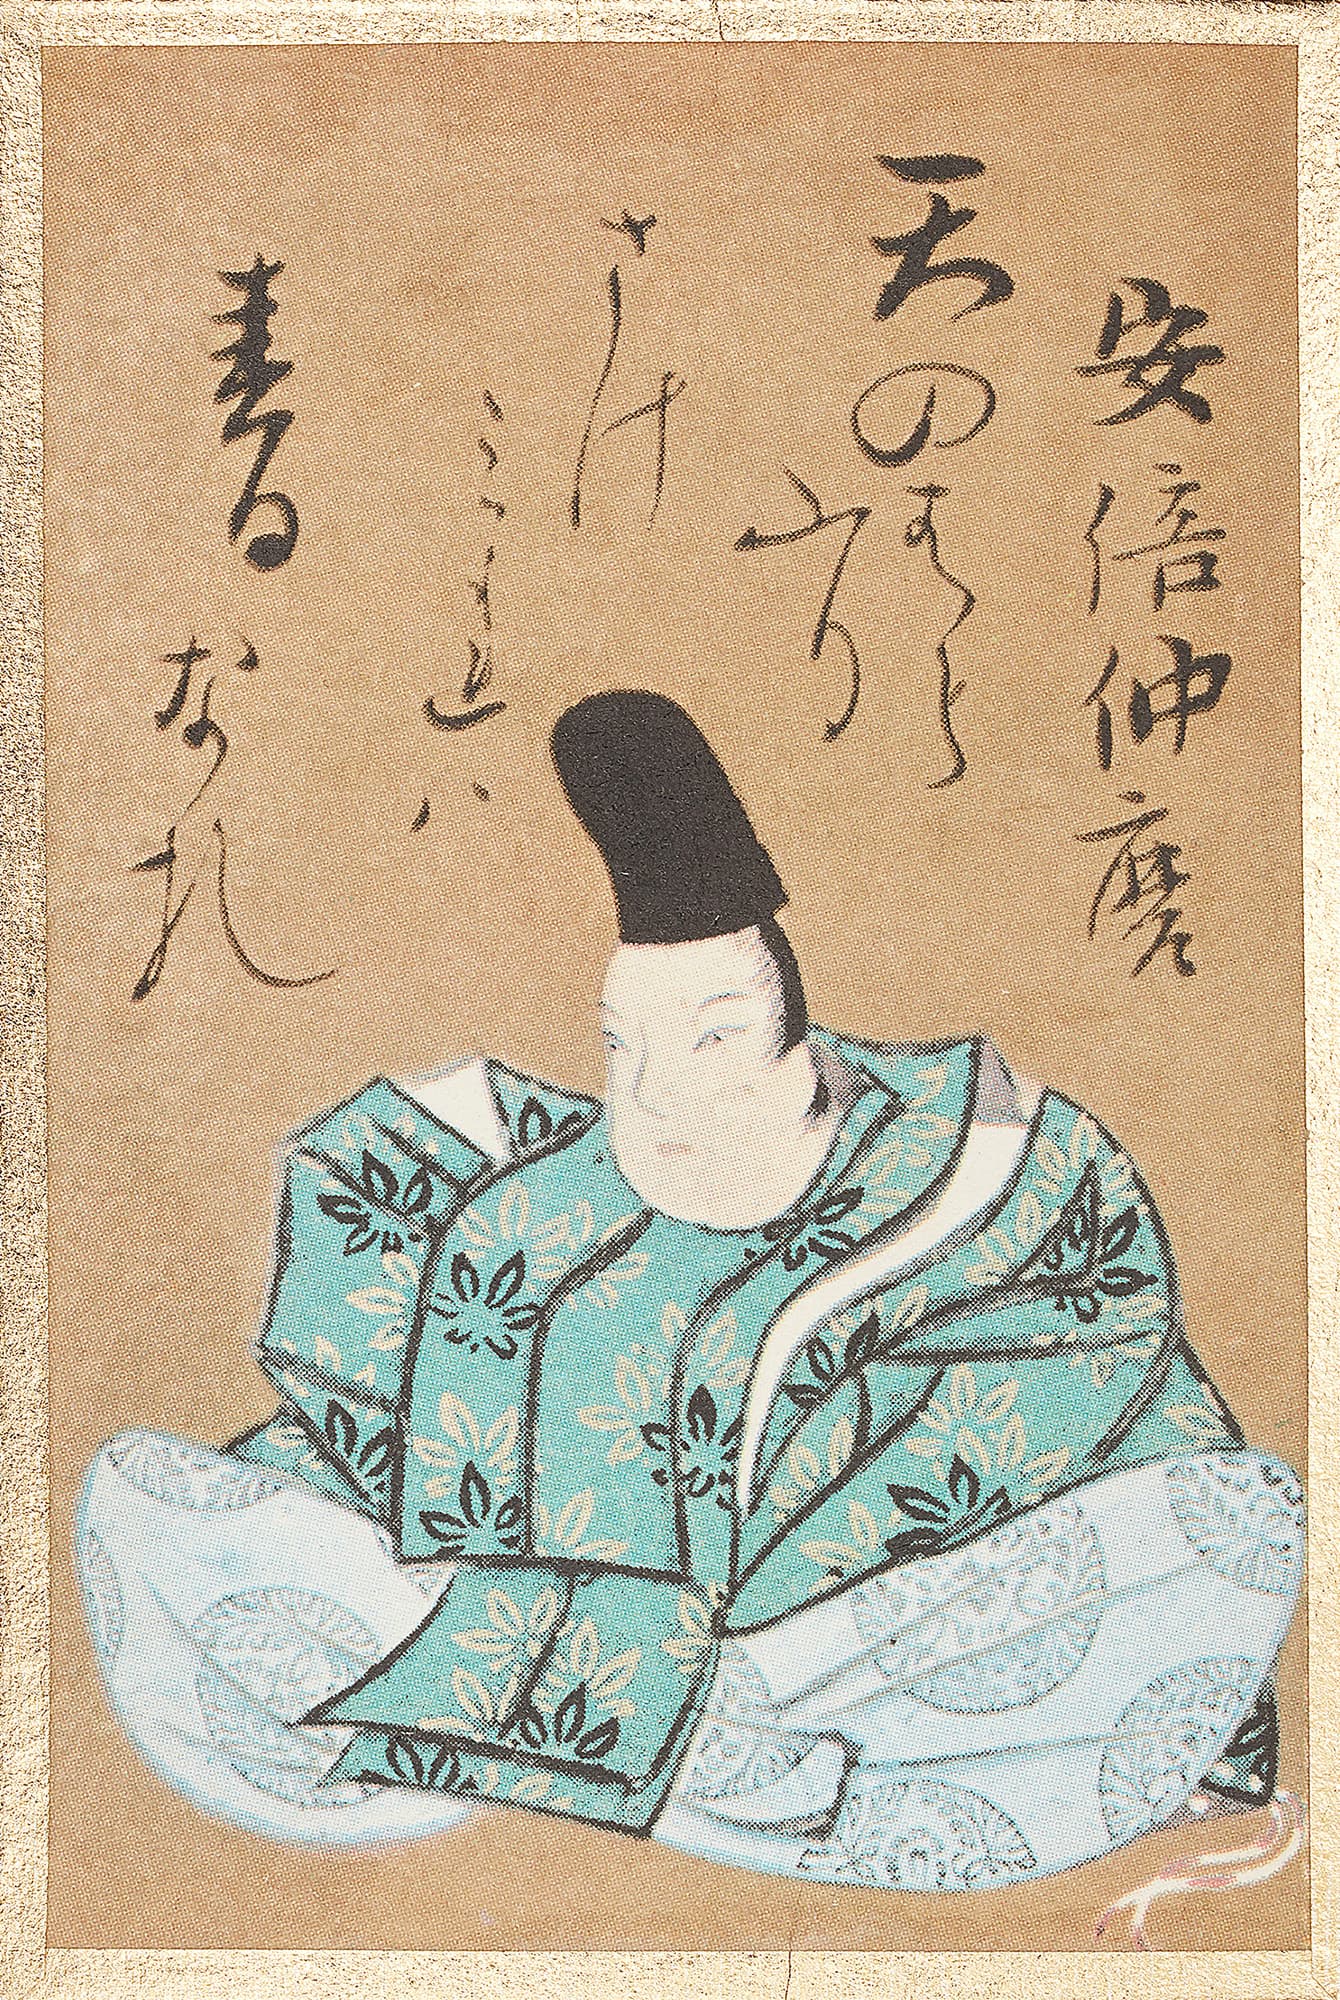 安倍仲麿
天のはら
ふり
さけ
みれハ
春日
なる